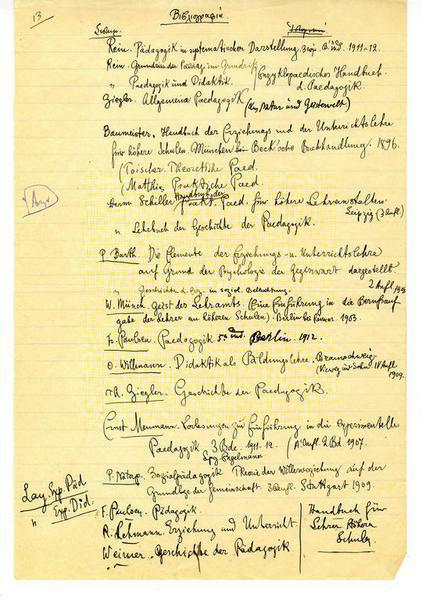 13
Библиографія
Rein. Pädagogik in systematischer Darstellung. 3 vol. 2 Aufl. 1911-12.
Rein. Grundriss der Pädag. im Grundriss
" Paedagogik und Didaktik. (Encyklopaedisches Handbuch d. Paedagogik.
Ziegler. Allgemeine Paedagogik (Natur und Geisteswelt)
Baumeister, Handbuch der Erziehungs und der Unterrichtslehre
für höhere Schulen. München bei Beck'sche Buchhandlung. 1896.
(Toischer. Theoretische Paed.
(Matthias Praktische Paed.
Herm Schiller Handbuch der Prakt. Paed. für höhere Lehranstalten.
Leipzig (3 Aufl.)
" Lehrbuch der Geschichte der Paedagogik.
P. Barth. Die Elemente der Erziehungs- u. Unterrichtslehre
auf Grund der Psychologie der Gegenwart dargestellt
2 Aufl.
" Geschichte d. Erz. in soziol. Beleuchtung.
W. Münch. Geist des Lehramts. (Eine Einführung in die Berufsauf-
gabe der Lehrer an höheren Schulen). Berlin bei Reimer. 1903.
Fr. Paulsen. Paedagogik 5 Berlin. 1912.
O. Willmann. Didaktik als Bildungslehre. Braunschweig.
Vieweg und Sohn IV Aufl 1909.
Th. Ziegler. Geschichte der Paedagogik.
Ernst Meumann. Vorlesungen zur Einführung in die Experimentelle
Paedagogik 3 Bde. 1911-12. (A. Aufl. 2 Bd. 1907.
Engelmann
P. Natorp. Sozialpädagogik. Theorie der Willenserziehung auf der
Grundlage der Gemeinschaft. 3 Aufl. Stuttgart 1909.
Lay. Exp. Päd
" Exp. Did.
F. Paulsen. Pädagogik.
R. Lehmann. Erziehung und Unterricht.
Weimer. Geschichte der Pädagogik
Handbuch für
Lehrer höherer
Schulen